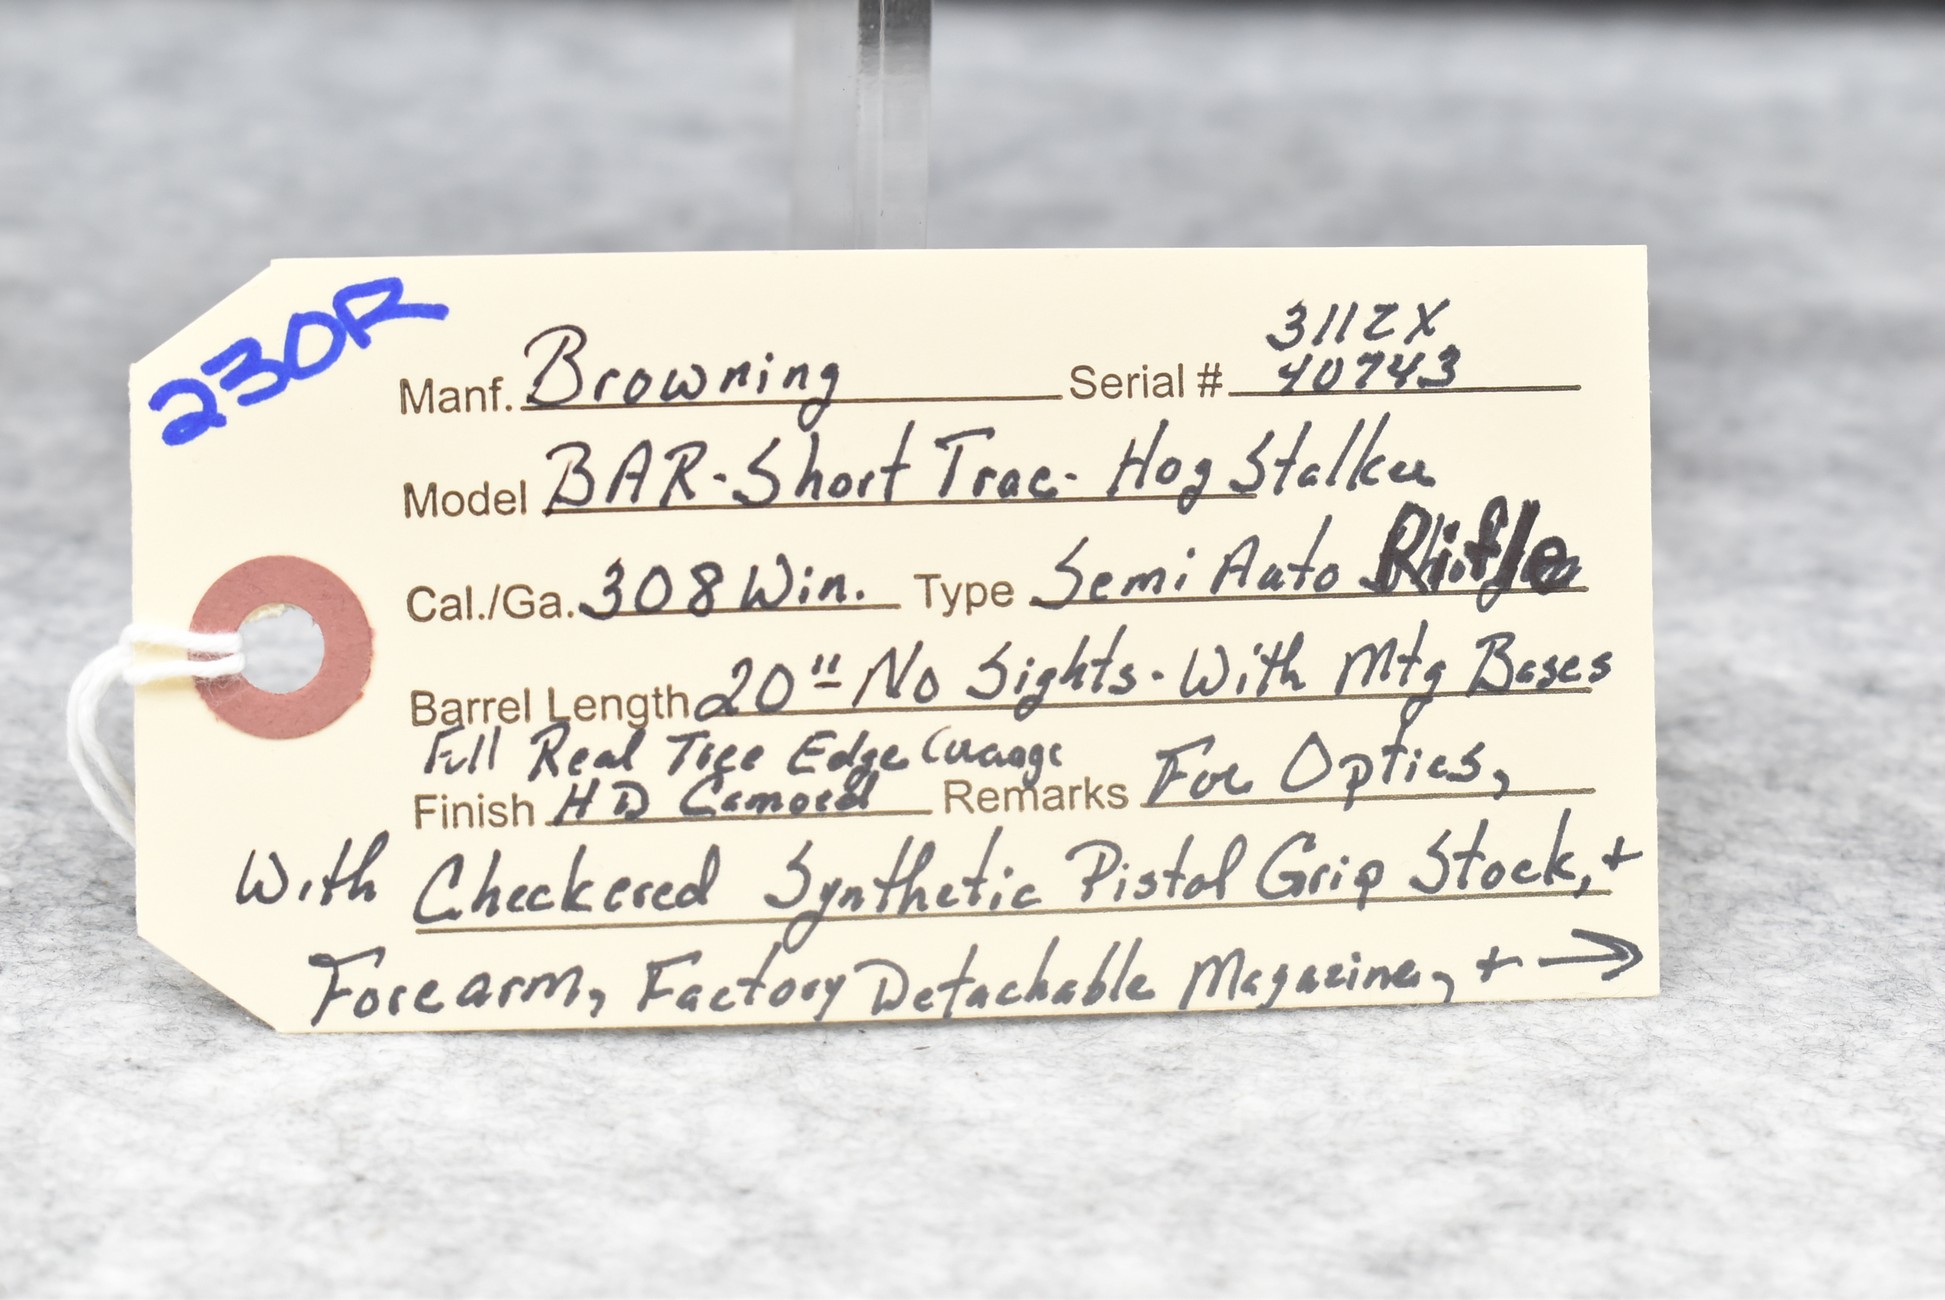 230R
3112X
Manf. Browning Serial # 40743
Model BAR-Short Trac- Hog Stalker
Cal./Ga. 308 Win. Type Semi Auto Rifle
Barrel Length 20" No Sights- With Mtg Bases
Full Real Tree Edge
Finish HD Camoed Remarks For Optics,
With Checkered Synthetic Pistol Grip Stock, +
Forearm, Factory Detachable Magazine, + →